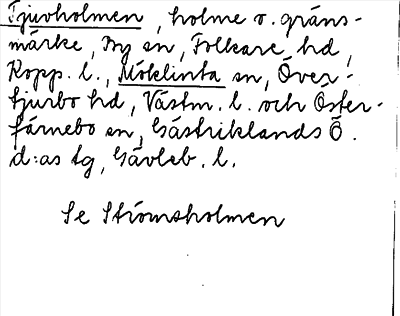 Tjuvholmen, holme o. gräns-
märke, By sn, Folkare hd,
Kopp. l., Möklinta sn, Över-
tjurbo hd, Västm. l. och Öster-
färnebo sn, Gästriklands Ö.
d:as tg, Gävleb. l.
Se Strömsholmen